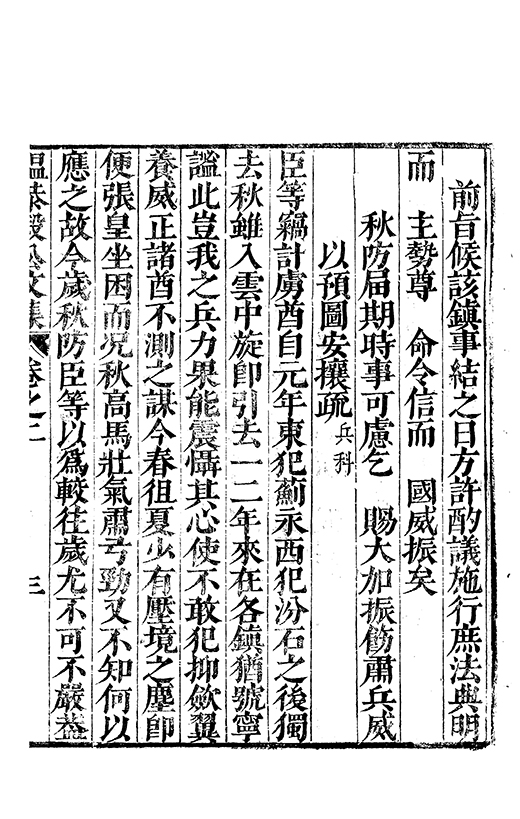 前旨候該鎮事結之日方許酌議施行庶法典明
而　主勢尊　命令信而　國威振矣
秋防屆期時事可慮乞　賜大加振飭肅兵威
以預圖安攘疏 兵科
臣等竊計虜酋自元年東犯薊永西犯汾石之後獨
去秋雖入雲中旋即引去一二年來在各鎮猶號寧
謐此豈我之兵力果能震懾其心使不敢犯抑斂翼
養威正諸酋不測之謀今春徂夏少有壓境之塵即
便張皇坐困而况秋高馬壯氣肅弓勁又不知何以
應之故今歲秋防臣等以爲較往歲尤不可不嚴葢
溫恭毅公文集 卷之二 三